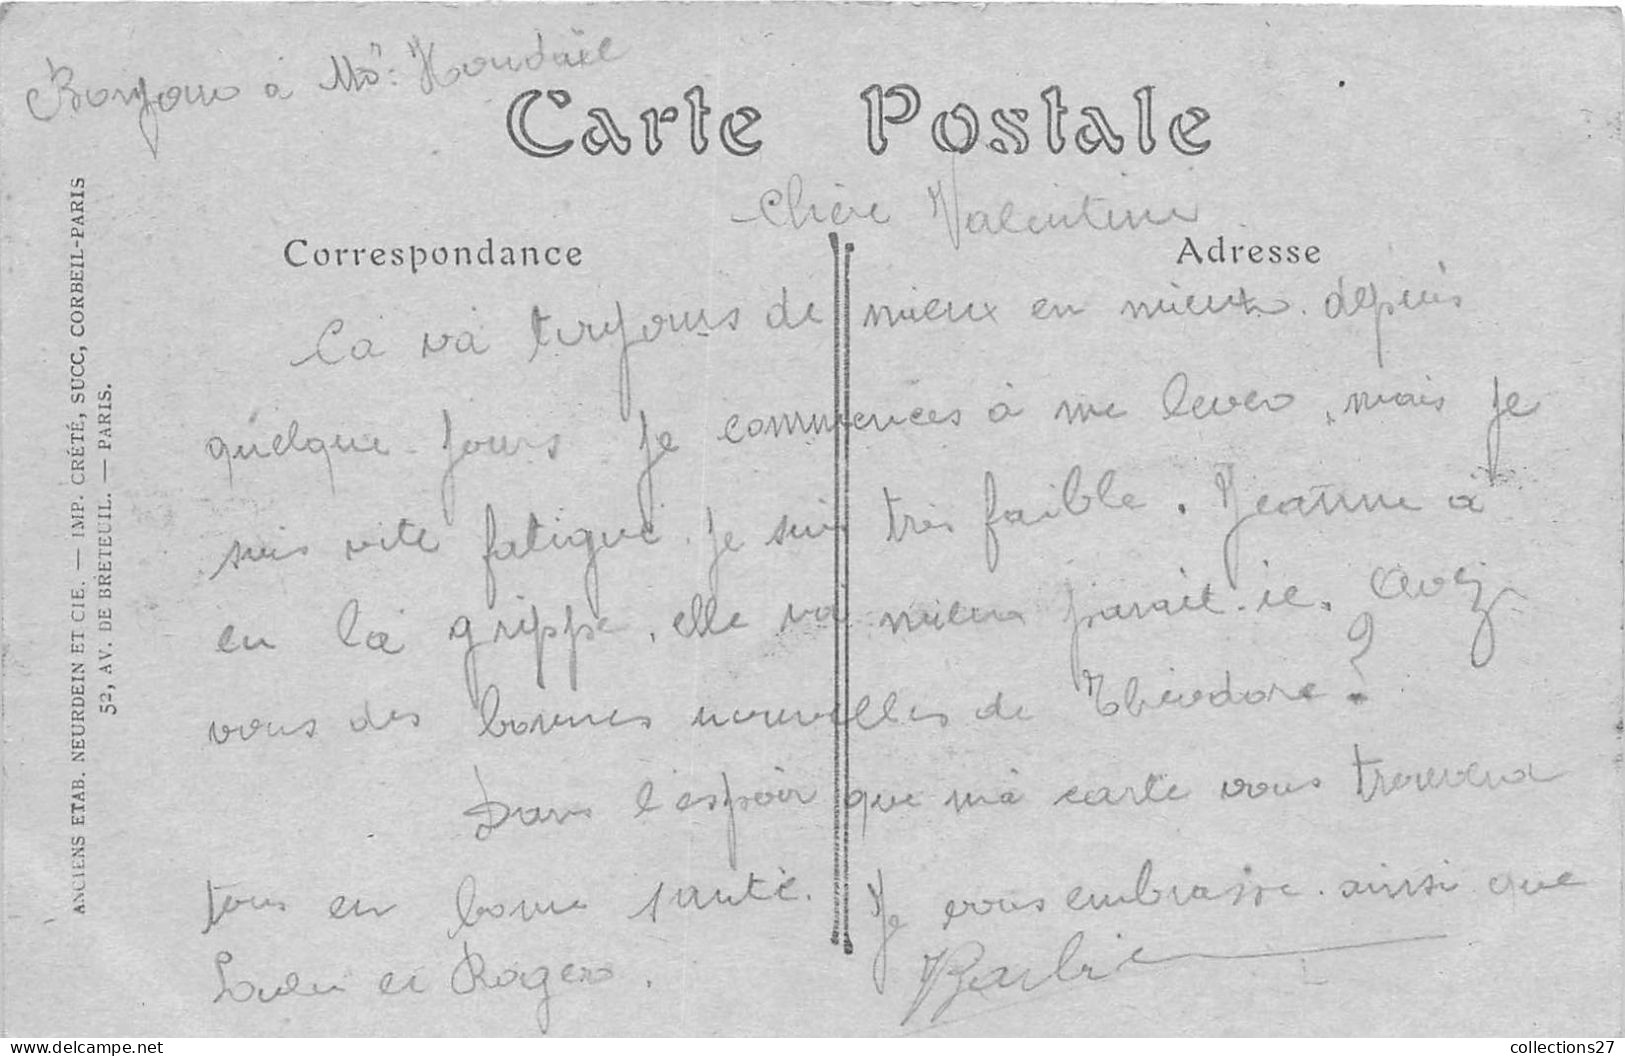 Bonjour à Mr:
Carte Postale
Chère Valentine
Correspondance
Adresse
Ça va toujours de mieux en mieux. depuis
quelque jours je commences à me lever, mais je
suis vite fatigué. je suis très faible. Jeanne à
eu la grippe, elle va mieux parait-il. Avez
vous des bonnes nouvelles de Théodore?
Dans l'espoir que ma carte vous trouvera
tous en bonne santé. Je vous embrasse. ainsi que
et Roger.
ANCIENS ETAB. NEURDEIN ET CIE. — IMP. CRÉTÉ, SUCC, CORBEIL-PARIS
52, AV. DE BRETEUIL. — PARIS.
collections27